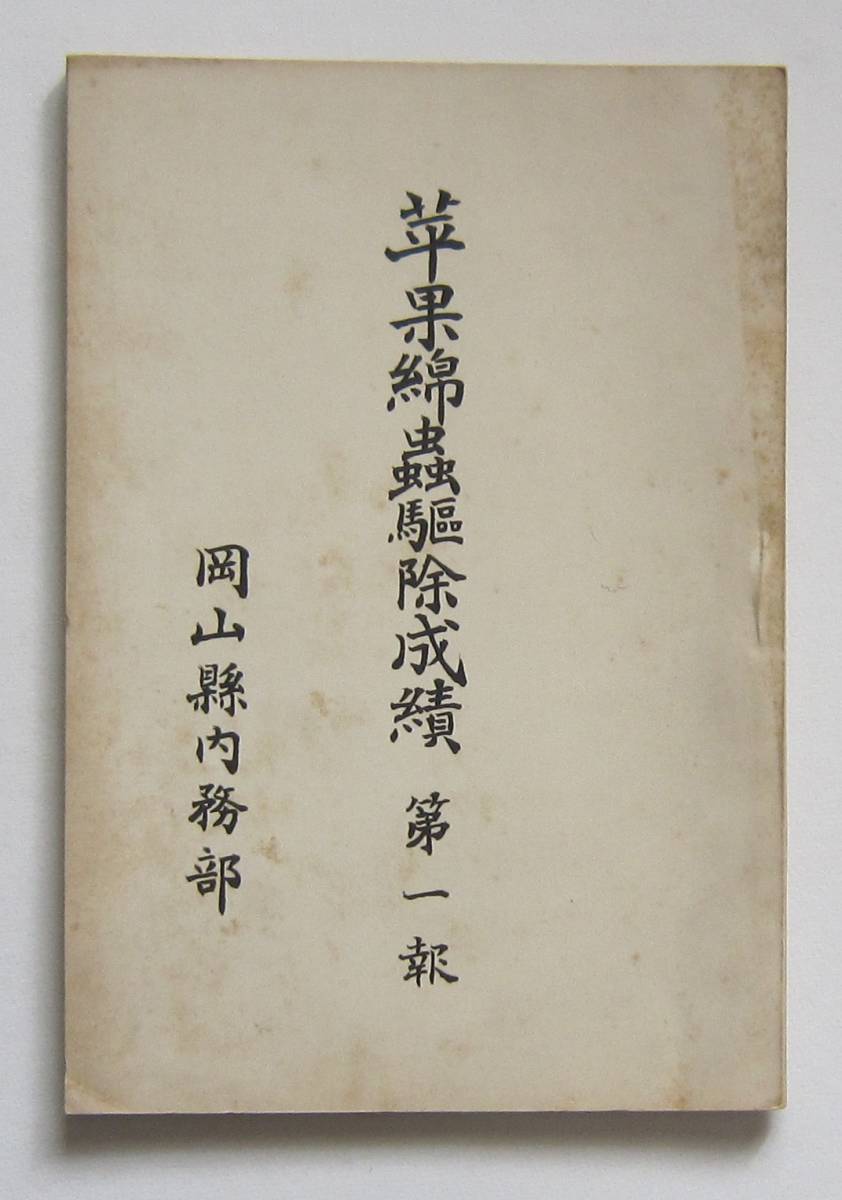 苹果綿蟲驅除成績 第一報
岡山縣内務部